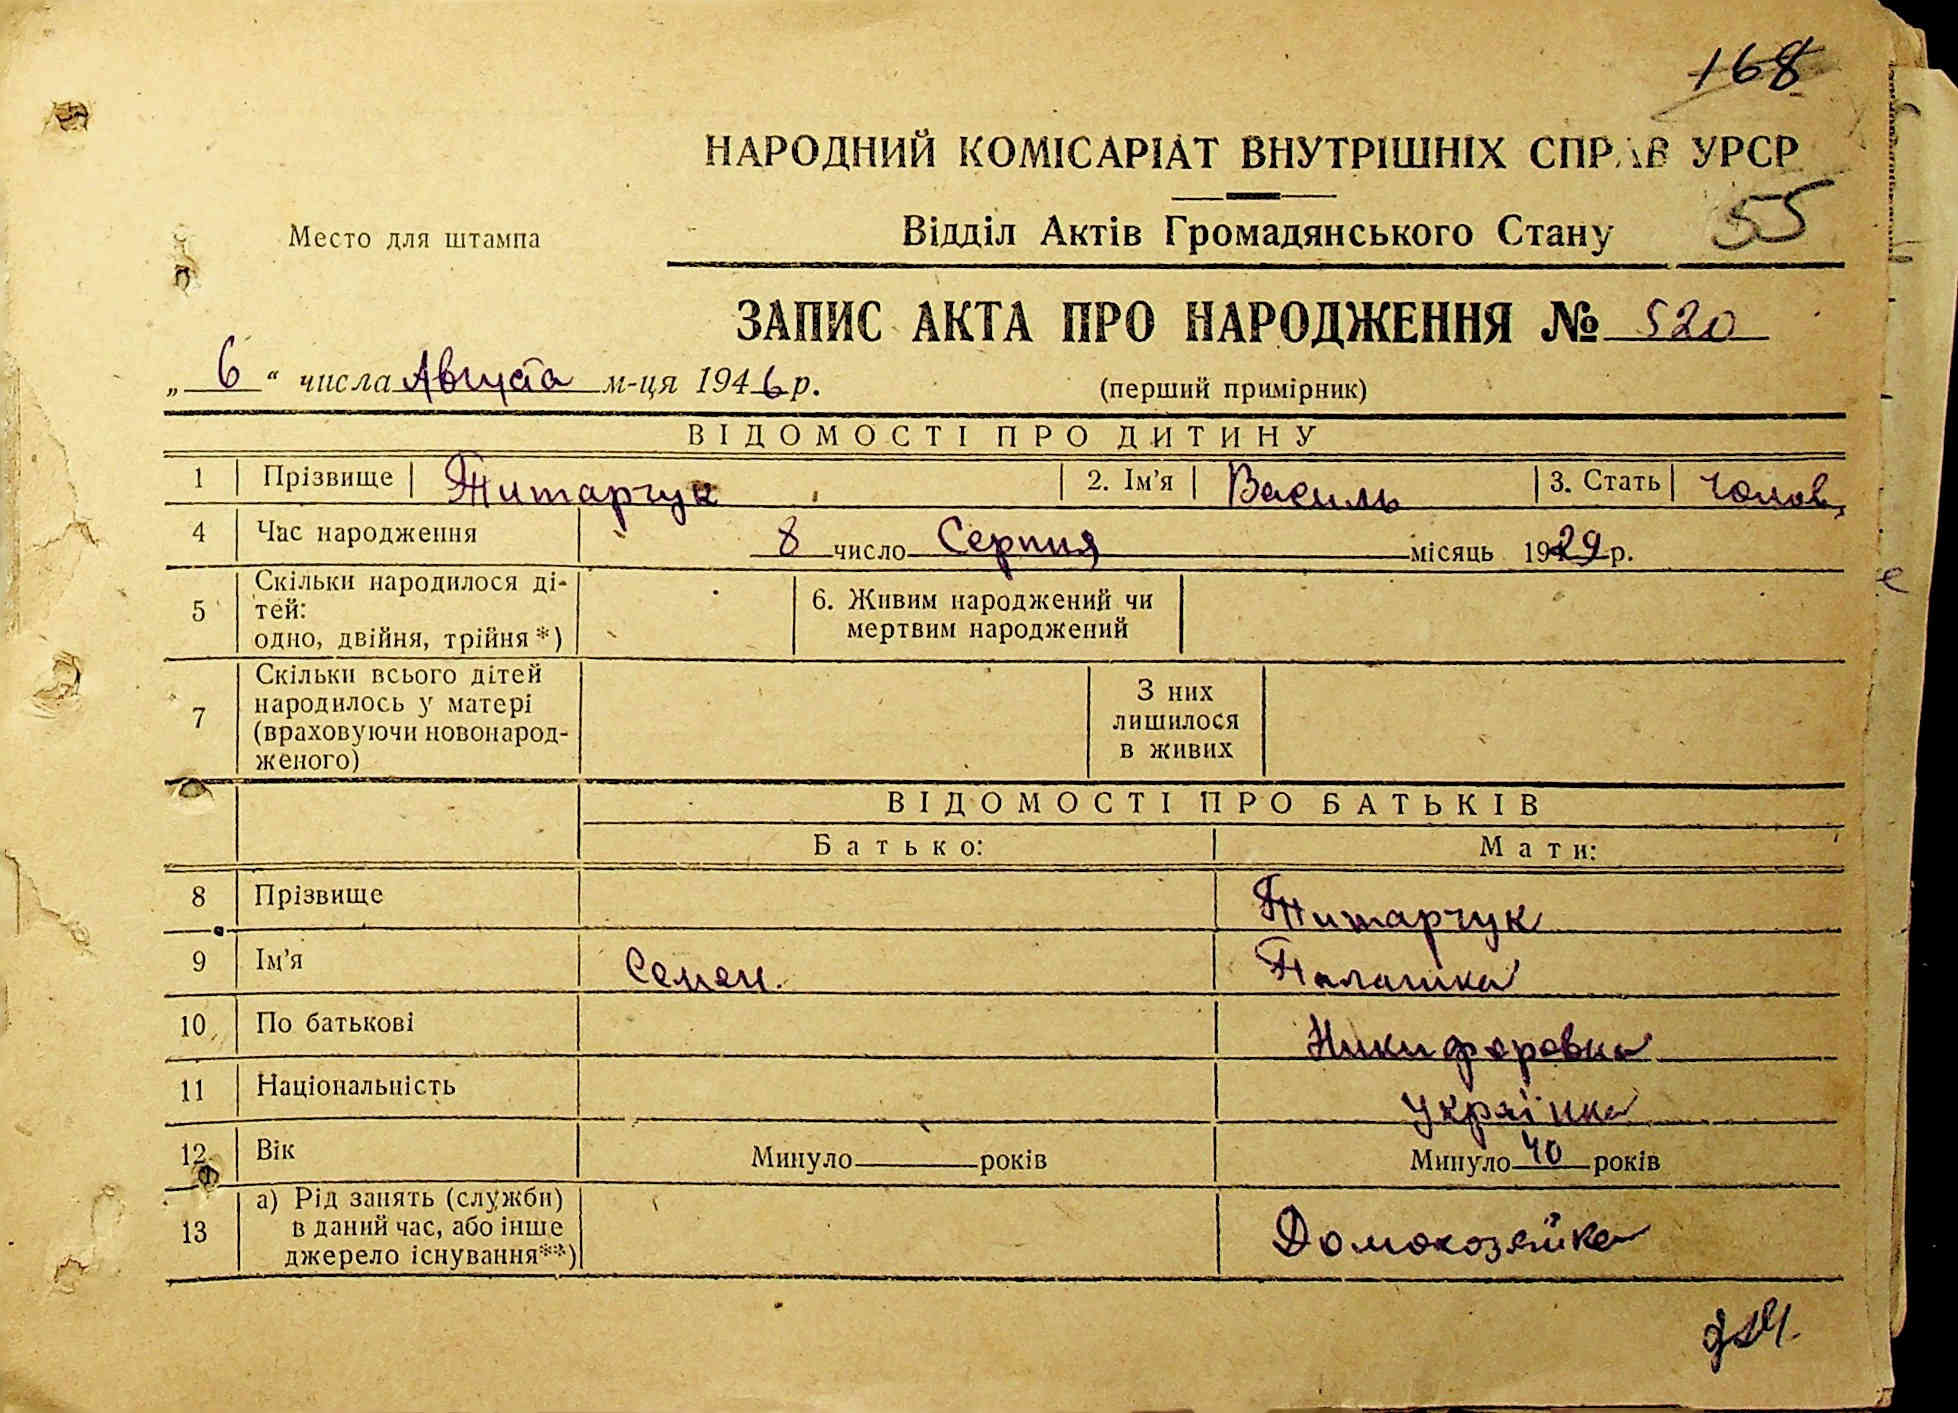 168
НАРОДНИЙ КОМІСАРІАТ ВНУТРІШНІХ СПРАВ УРСР
Место для штампа
Відділ Актів Громадянського Стану 55
ЗАПИС АКТА ПРО НАРОДЖЕННЯ № 520
„ 6 “ числа Августа м-ця 1946 р. (перший примірник)
ВІДОМОСТІ ПРО ДИТИНУ
1 Прізвище Титарчук 2. Ім’я Василь 3. Стать Чолов.
4 Час народження 8 число Серпня місяць 1929 р.
5 Скільки народилося ді-
тей:
одно, двійня, трійня*)
6. Живим народжений чи
мертвим народжений
7 Скільки всього дітей
народилось у матері
(враховуючи новонарод-
женого)
З них
лишилося
в живих
ВІДОМОСТІ ПРО БАТЬКІВ
Батько: Мати:
8 Прізвище Титарчук
9 Ім’я Семен. Палашка
10 По батькові Никифоровна
11 Національність Українка
12 Вік Минуло років Минуло 40 років
13 а) Рід занять (служби)
в даний час, або інше
джерело існування**)
Домохозяйка